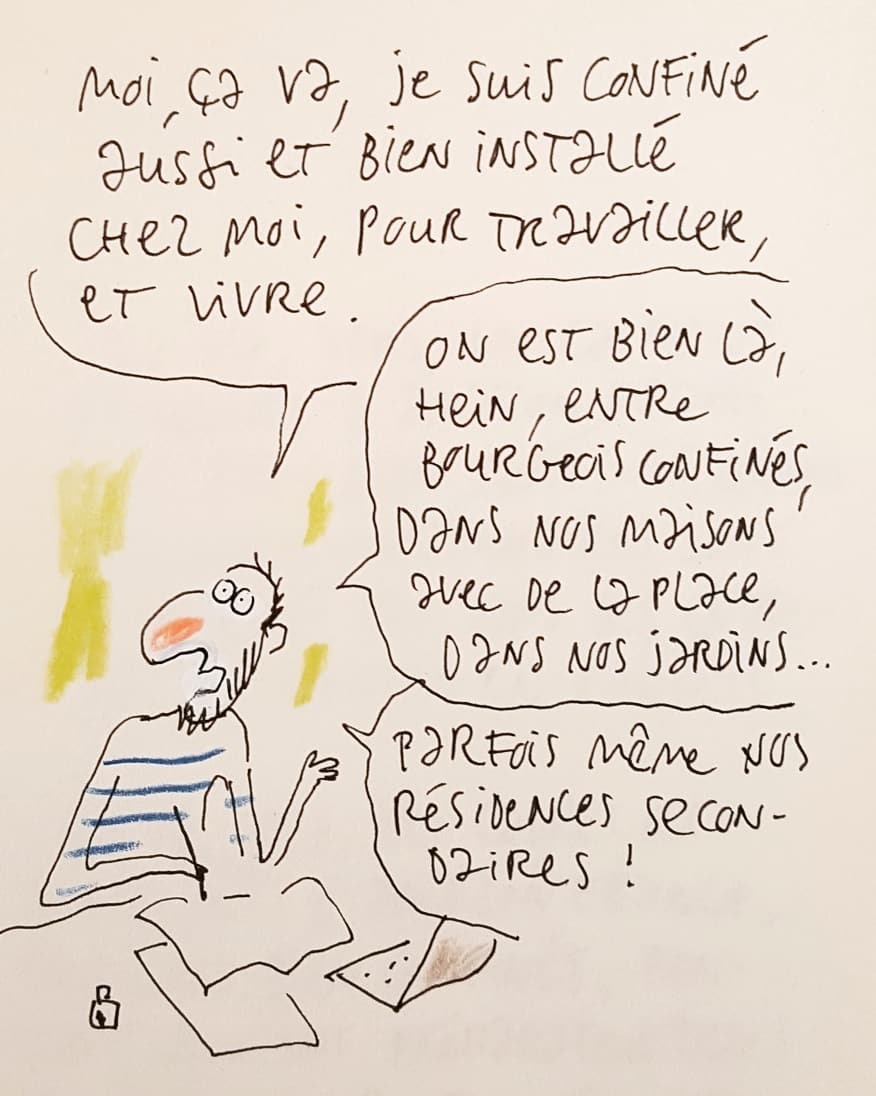 Moi, ça va, je suis confiné
aussi et bien installé
chez moi, pour travailler,
et vivre.
On est bien là,
hein, entre
bourgeois confinés,
dans nos maisons
avec de la place,
dans nos jardins...
Parfois même nos
résidences secon-
daires !